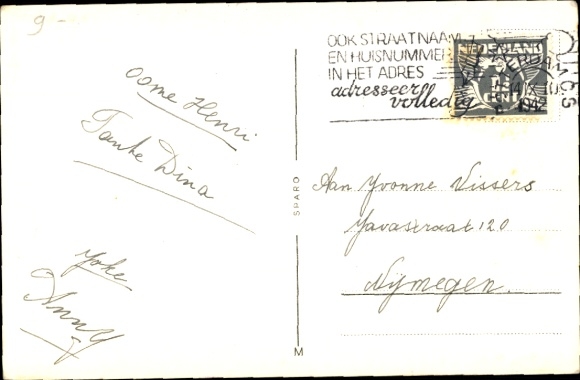 9-
OOK STRAATNAAM
EN HUISNUMMER
IN HET ADRES
adresseer
volledig
NEDERLAND
1942
Oome Henri
Tante Dina
Yoke
Anny
SPARO
M
Aan Yvonne Vissers
Javastraat 120
Nymegen.